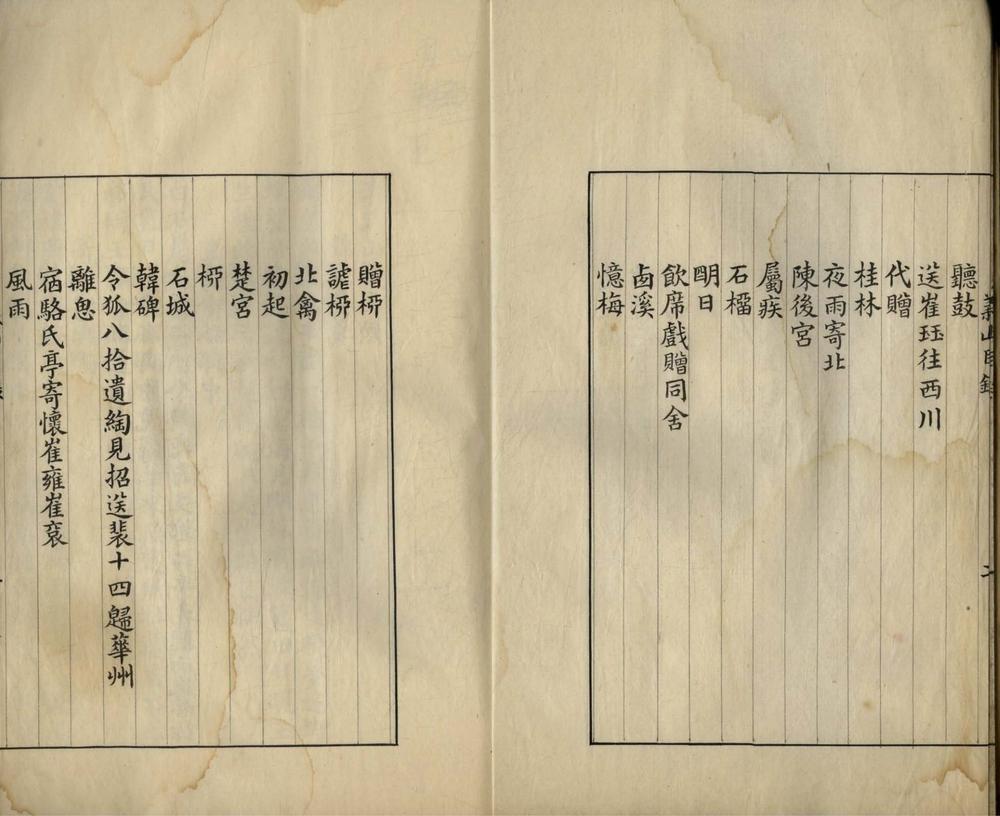 聽鼓
送崔珏往西川
代贈
桂林
夜雨寄北
陳後宮
屬疾
石榴
明日
飲席戲贈同舍
鹵溪
憶梅
贈栁
謔栁
北禽
初起
楚宮
栁
石城
韓碑
令狐八拾遺綯見招送裴十四歸華州
離思
宿駱氏亭寄懷崔雍崔袞
風雨